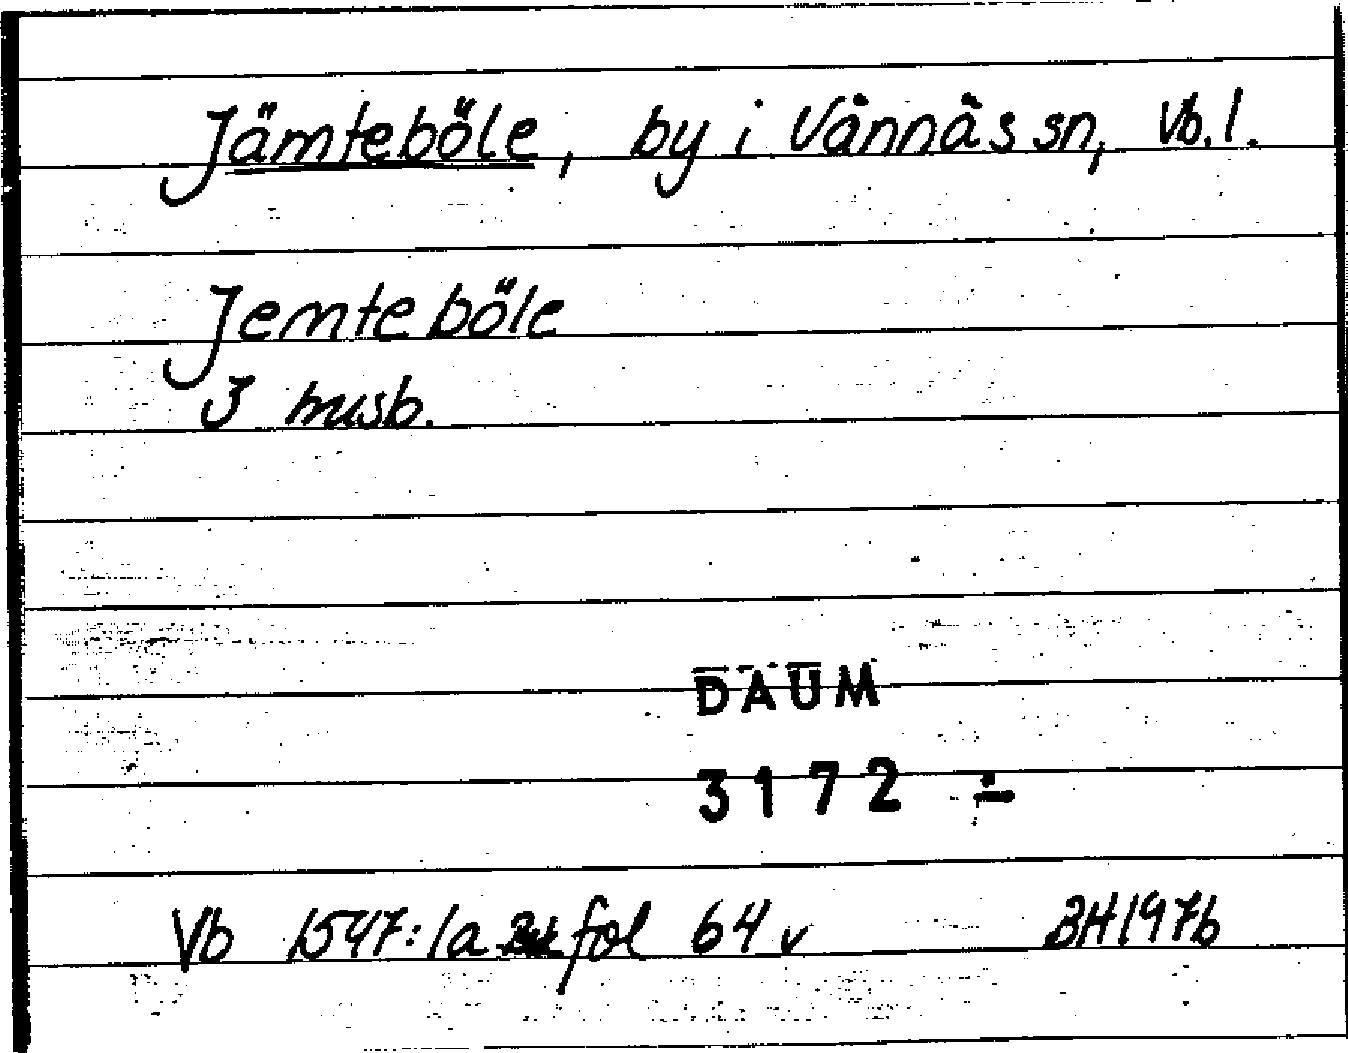 Jämteböle, by i Vännäs sn, Vb. l.
Jemteböle
3 husb.
DAUM
3172
Vb 1547:1a fol 64 v BH1976